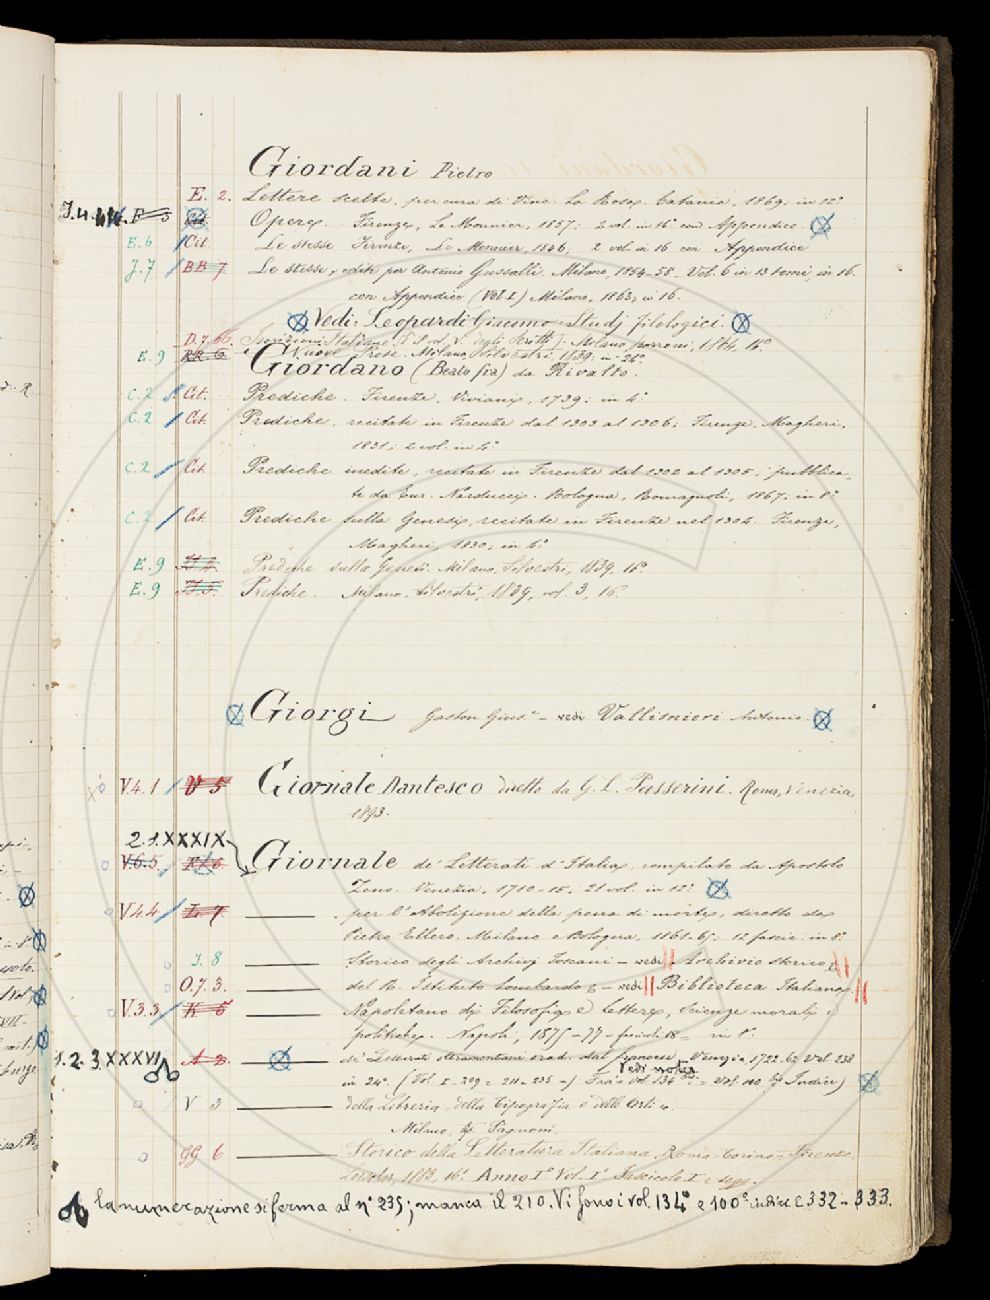 Giordani Pietro
E. 2. Lettere scelte, per cura di Vinc. La Rosa. Catania, 1869; in 12°
Opere. Firenze, Le Monnier, 1857; 2 vol. in 16° con Appendice.
E. 6 Cit. Le stesse Firenze, Le Monnier, 1846; 2 vol. in 16 con Appendice
J. 7 BB 7 Le stesse, edite per Antonio Gussalli. Milano, 1854-58 Vol. 6 in 13 tomi; in 16.
con Appendice (Vol. I) Milano, 1863; in 16.
Vedi: Leopardi Giacomo: Studj filologici.
D. 7. 66. Iscrizioni Italiane. Milano, 1864, 16°
E. 9 RR 6. Nuove Prose. Milano, Silvestri, 1839. in
Giordano (Beato fra) da Rivalto.
C. 2 Cit. Prediche. Firenze, Viviani, 1739; in 4°
C. 2 Cit. Prediche, recitate in Firenze dal 1303 al 1306; Firenze, Magheri,
1831; 2 vol. in 4°
C. 2 Cit. Prediche inedite, recitate in Firenze dal 1302 al 1305; pubblica-
te da Enr. Narducci. Bologna, Romagnoli, 1867. in 8°
C. 2 Cit. Prediche sulla Genesi, recitate in Firenze nel 1304. Firenze,
Magheri, 1830; in 4°
E. 9 Prediche sulla Genesi. Milano, Silvestri, 1839, 16°
E. 9 Prediche. Milano, Silvestri, 1839, vol. 3, 16°
Giorgi Gaston Gius.e – vedi Vallisnieri Antonio
V. 4. 1 V 5 Giornale Dantesco diretto da G. L. Passerini. Roma, Venezia,
1893.
2. 1. XXXIX
V. 6. 5 Giornale de' Letterati d'Italia, compilato da Apostolo
Zeno. Venezia, 1710-15; 21 vol. in 12°
V. 4. 4 L 7 per l'Abolizione della pena di morte, diretto da
Pietro Ellero. Milano e Bologna, 1861-65; 12 fascic. in 8°
J. 8 Storico degli Archivj Toscani – vedi Archivio storico
O. 7. 3. del R. Istituto Lombardo – vedi Biblioteca Italiana
V. 3. 3 K 6 Napoletano di Filosofia e Lettere, Scienze morali e
politiche. Napoli, 1875-77 – in 8°
1. 2. 3. XXXVI A 2. de' Letterati oltramontani trad. dal francese Venezia 1722-62 Vol. 238
Vedi nota
in 24°. (Vol. I – 209 = 211 – 235 –)
V 3 della Libreria, della Tipografia e delle Arti
Milano, Pagnoni.
GG 6 Storico della Letteratura Italiana. Roma-Torino-Firenze
Loescher, 1883, 16°. Anno I° Vol. I° Fascicolo I e segg.
la numerazione si ferma al n° 235; manca il 210. Vi sono i vol. 134° e 100° indice e 332-333.